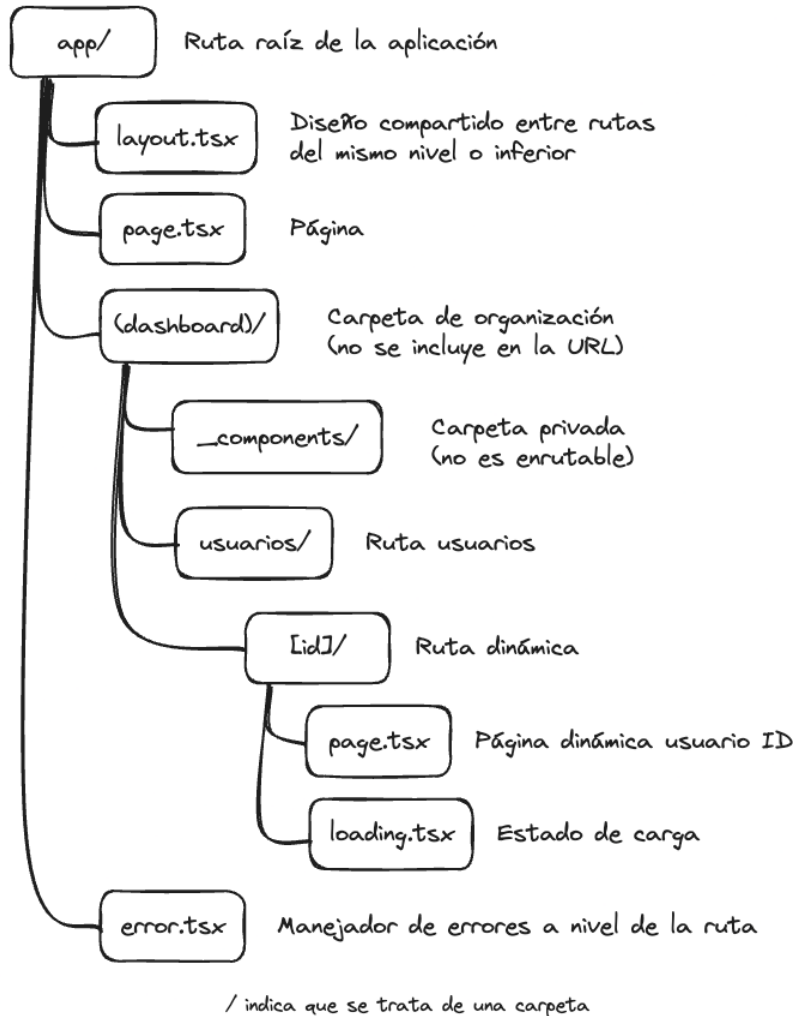 app/ Ruta raíz de la aplicación
layout.tsx Diseño compartido entre rutas
del mismo nivel o inferior
page.tsx Página
(dashboard)/ Carpeta de organización
(no se incluye en la URL)
_components/ Carpeta privada
(no es enrutable)
usuarios/ Ruta usuarios
[id]/ Ruta dinámica
page.tsx Página dinámica usuario ID
loading.tsx Estado de carga
error.tsx Manejador de errores a nivel de la ruta
/ indica que se trata de una carpeta